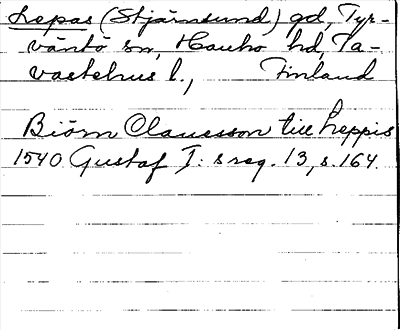 Lepas (Stjärnsund) gd, Tyr-
väntö sn, Hauho hd, Ta-
vastehus l., Finland
Biörn Clauesson till Leppis
1540 Gustaf I: s reg. 13, s. 164.